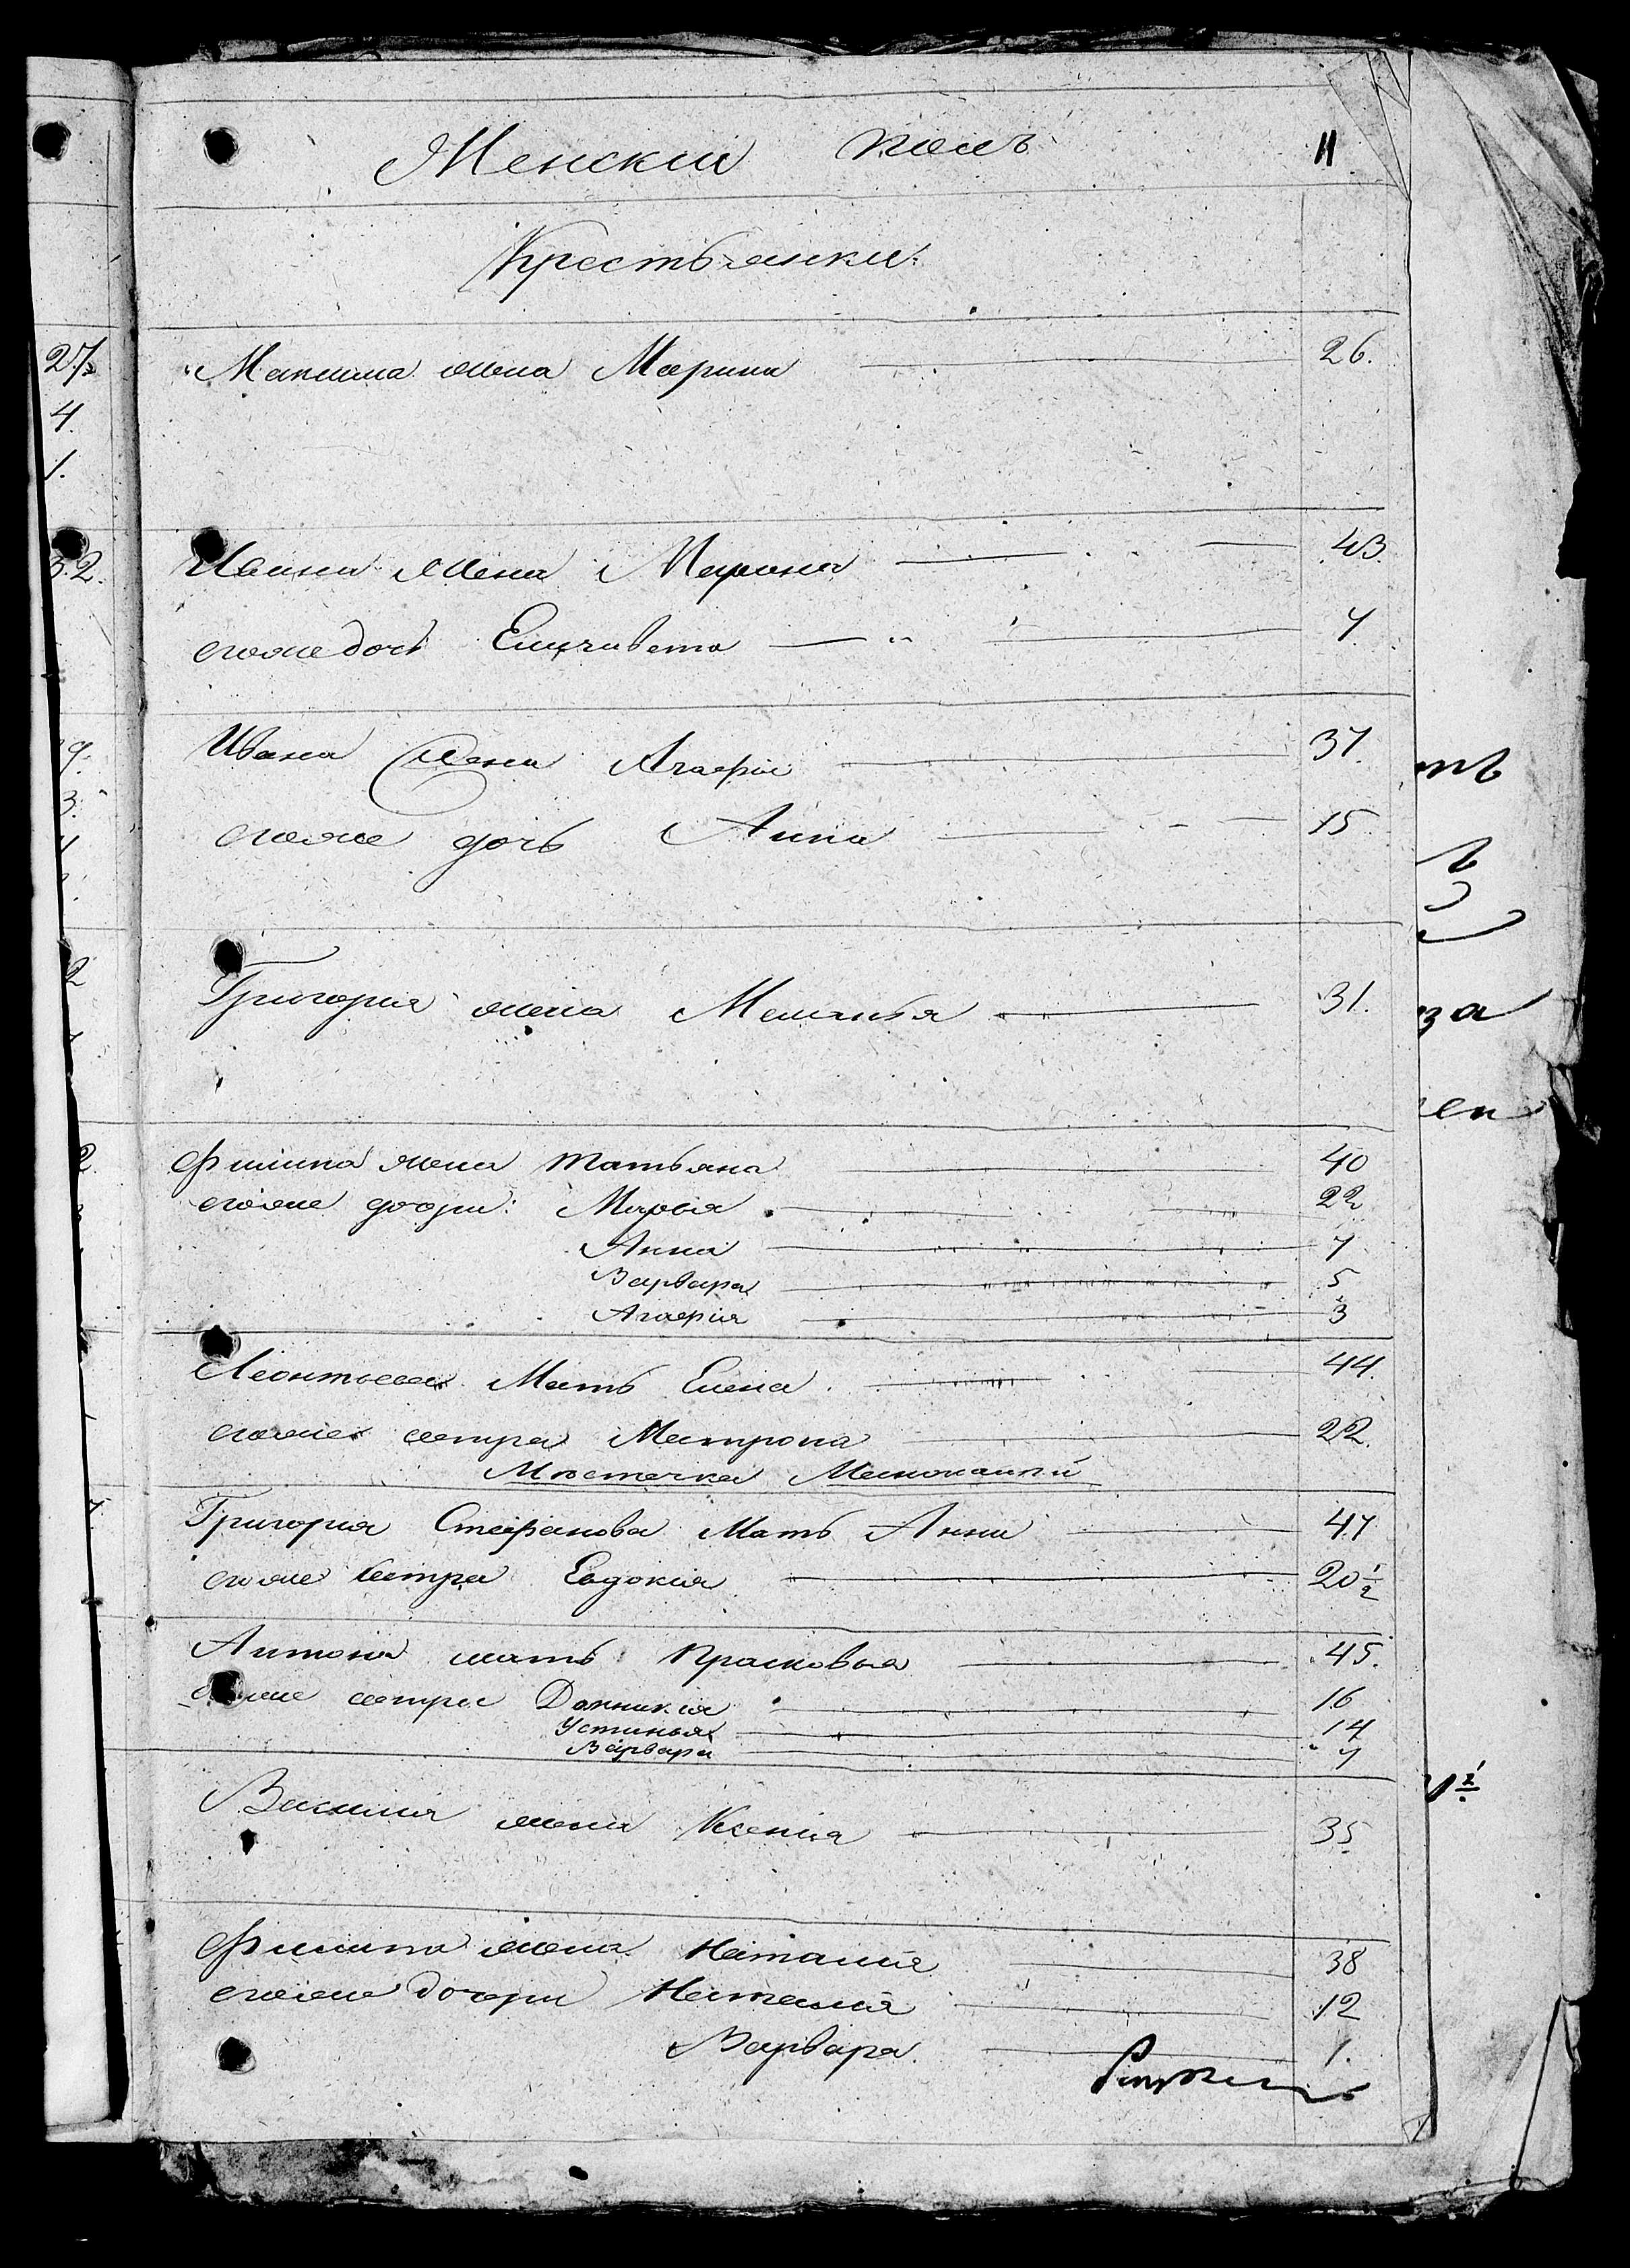 Женскій полъ 11
Крестьянки.
Максима жена Марина 26.
Ивана жена Марина 43.
его же дочь Елизавета 7
Ивана жена Агафія 37.
его же дочь Анна 15
Григорія жена Меланья 31.
Филипа жена Татьяна 40
его же дочери: Марья 22
Анна 7
Варвара 5
Агафія 3
Леонтьева Мать Елена 44.
его же сестра Матрона 22.
Мѣстечка
Григорія Стефанова Мать Анна 47
его же сестра Евдокія 20 1/2
Антона мать Прасковья 45.
его же сестры Домникія 16
Устинья 14
Варвара 7
Василія жена Ксенія 35
Филипа жена Наталія 38
его же дочери Наталія 12
Варвара 1.
27.
4.
1.
32.
9.
3.
2
2.
ть
за